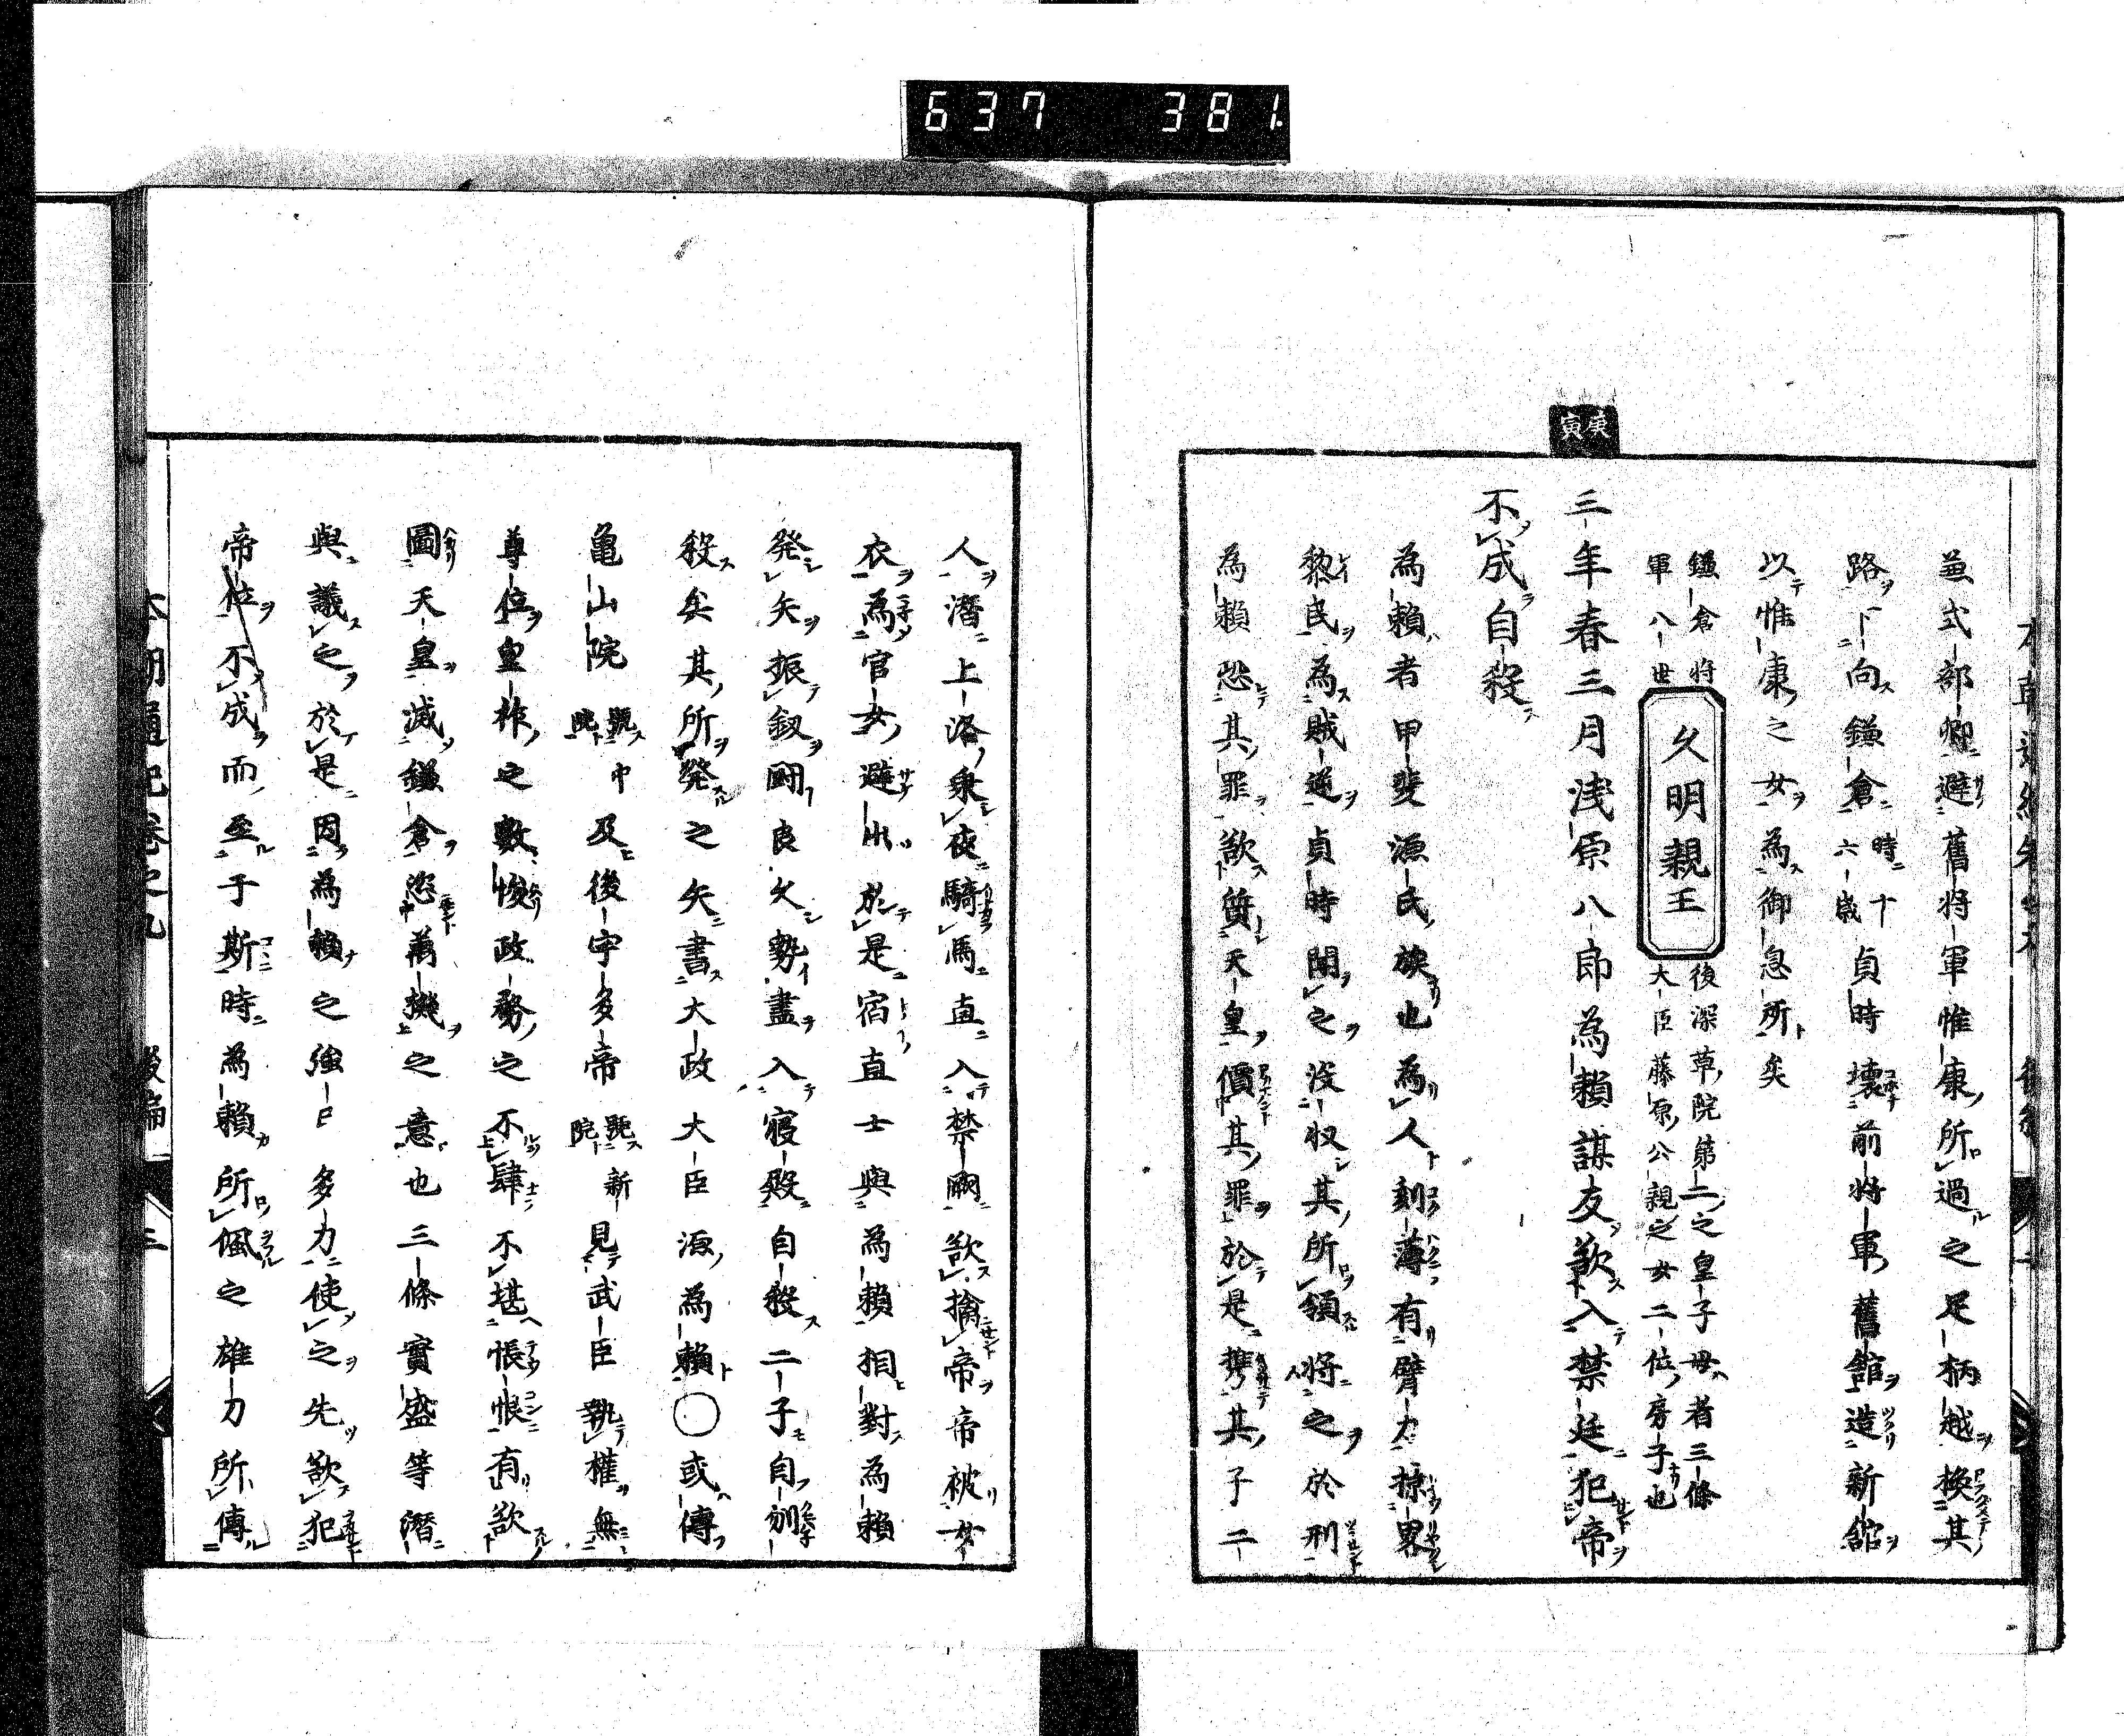 637 381
庚寅
並式部卿避舊將軍惟康所過之足柄越換其
路下向鎌倉時十六歳貞時壞前將軍舊舘造新舘
以惟康之女為御息所矣
鎌倉將軍八世 久明親王 後深草院第二之皇子母者三條大臣藤原公親之女二位房子也
三年春三月浅原八郎為頼謀友欲入禁廷犯帝
不成自殺
為頼者甲斐源氏族也為人刻薄有臂力掠畧
黎民為賊逆貞時聞之没収其所領將之於刑
為頼恐其罪欲質天皇價其罪於是携其子二
人潛上洛乗夜騎馬直入禁闕欲擒帝帝被女
衣為官女避出於是宿直士與為頼相對為頼
発矢振釼闘良久勢盡入寝殿自殺二子自刎
殺矣其所発之矢書大政大臣源為頼〇或傳
亀山院號中院及後宇多帝號新院見武臣執權無
尊位皇祚之數悛政務之不肆不堪悵恨有欲
圖天皇滅鎌倉恣萬機之意也三條實盛等潛
與議之於是因為頼之強曰多力使之先欲犯
帝位不成而至于斯時為頼所佩之雄刀所傳
本朝通紀卷之九 三